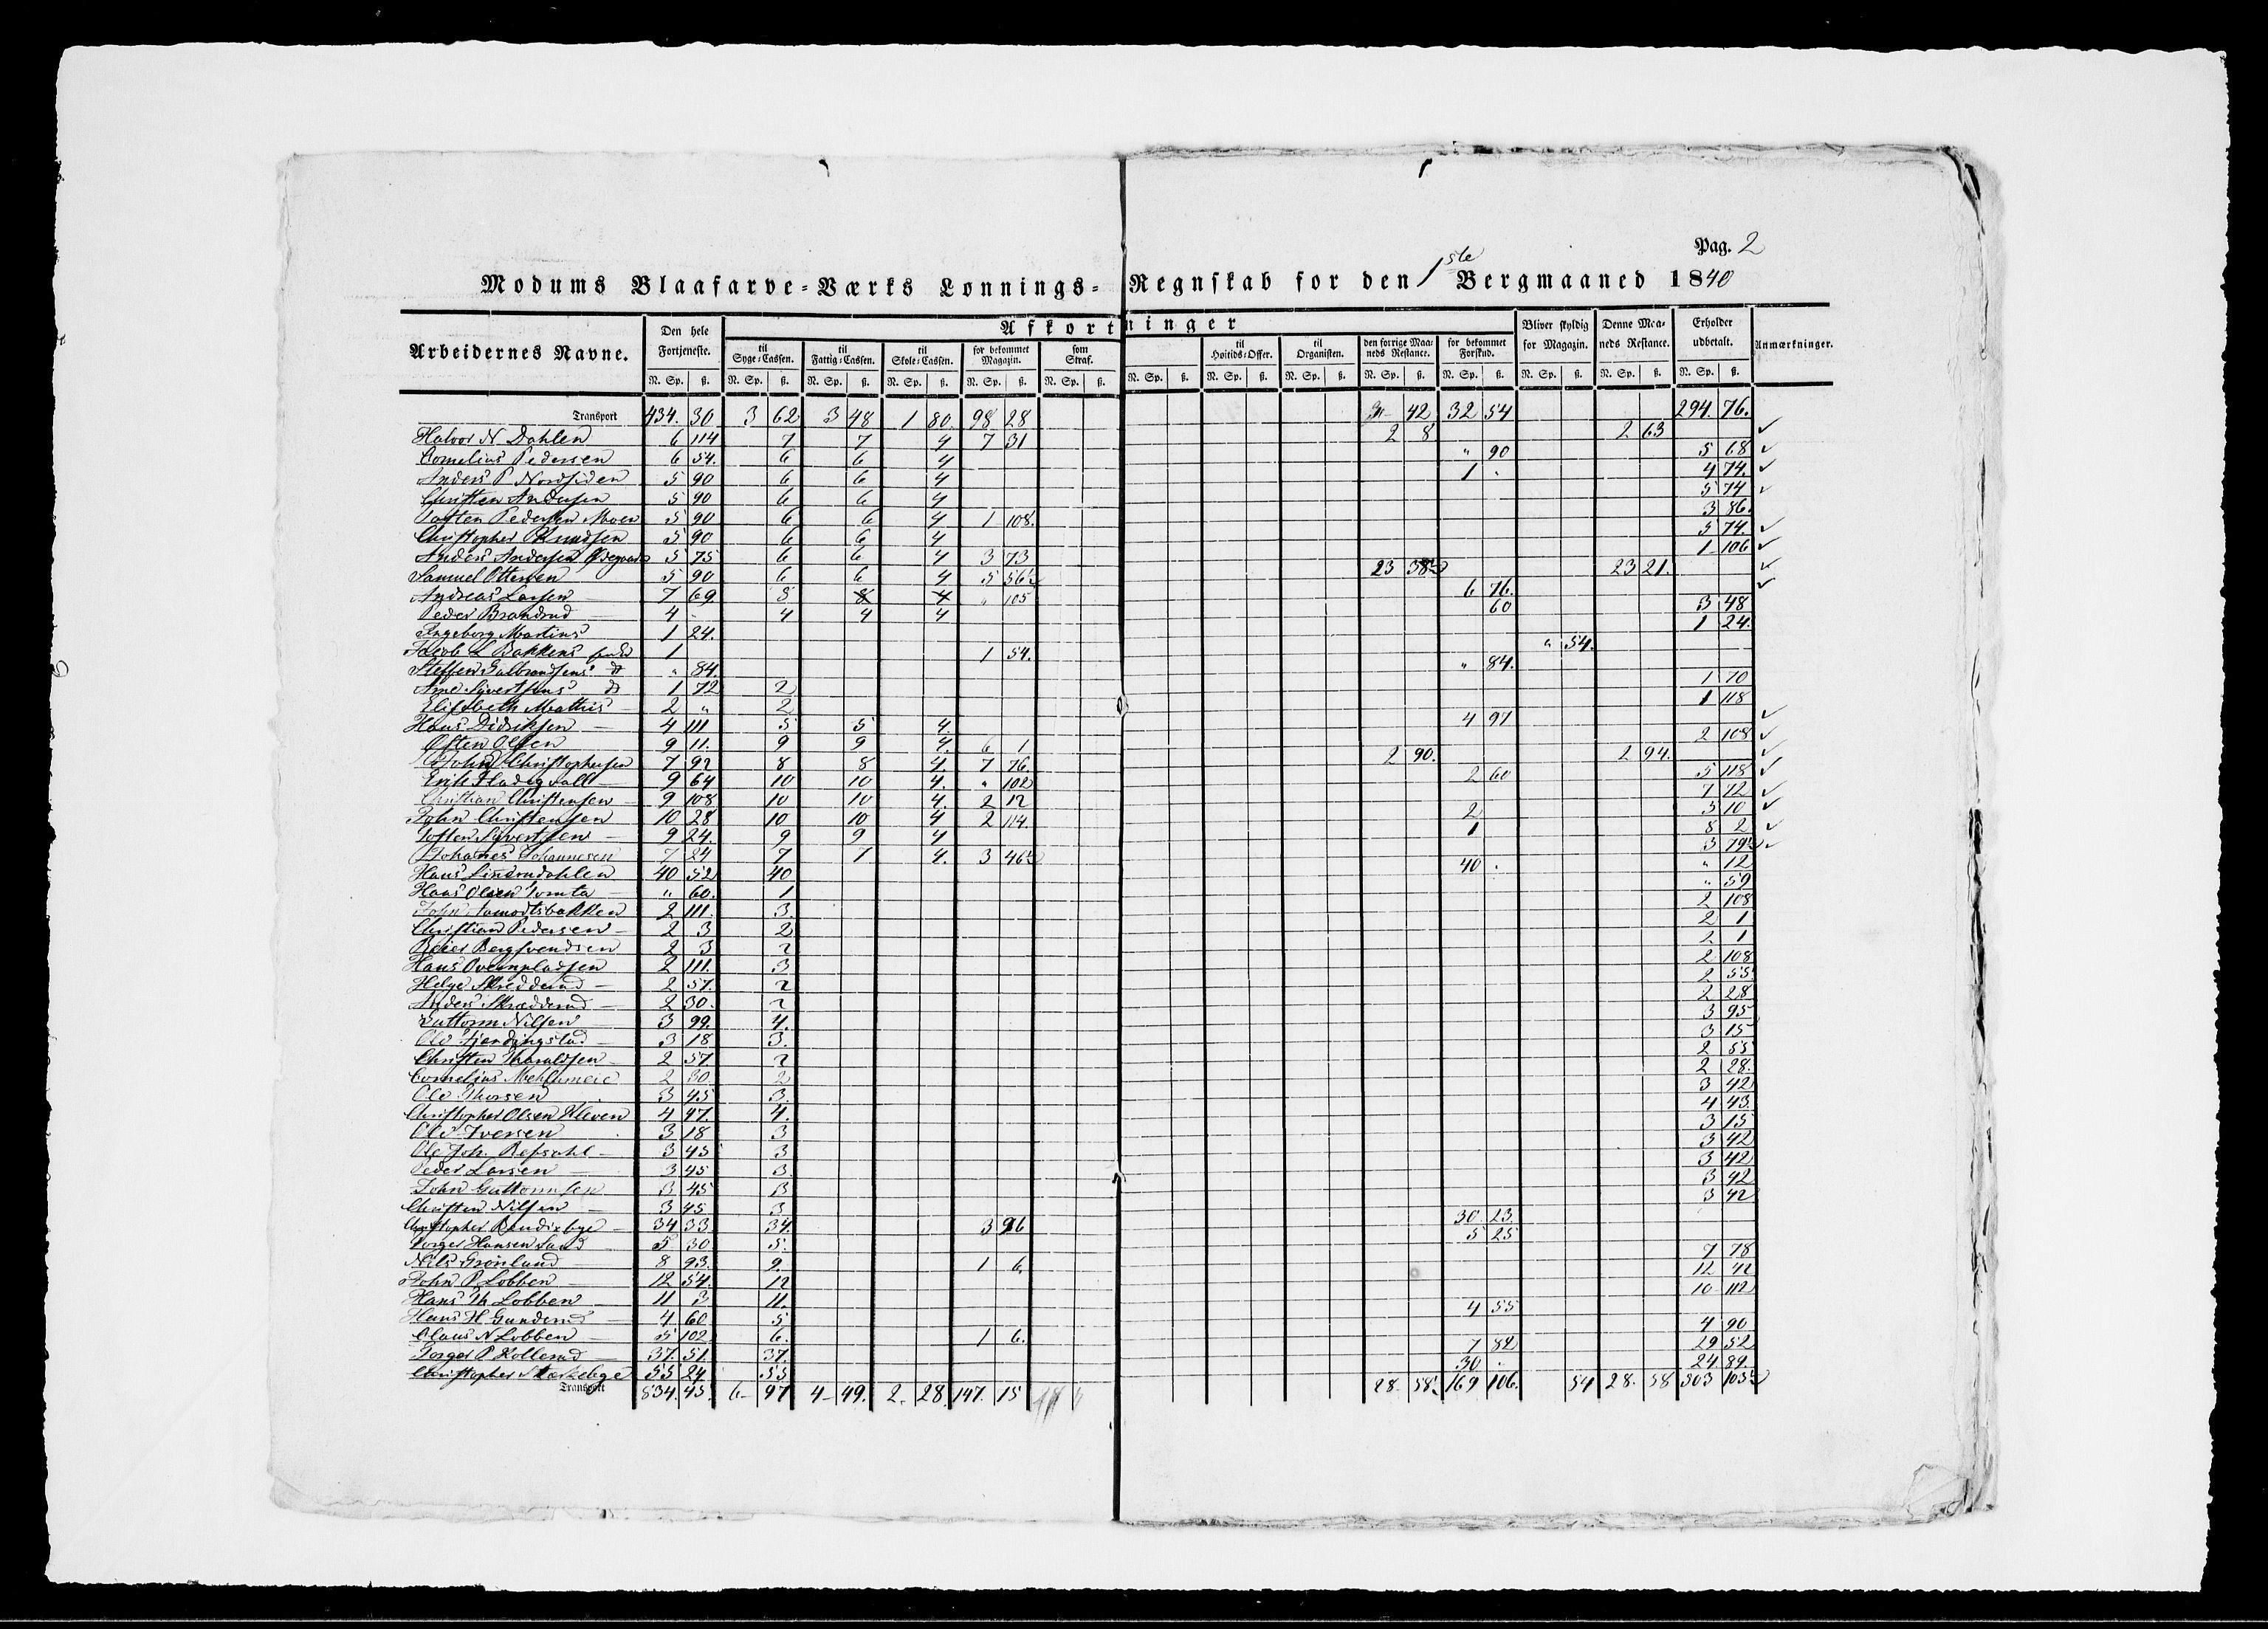 Pag. 2
Modums Blaafarve-Værks Lønnings-Regnskab for den 1ste Bergmaaned 1840
Arbeidernes Navne. Den hele Fortjeneste. Afkortninger Bliver skyldig for Magazin. Denne Maaneds Restance. Erholder udbetalt. Anmærkninger.
til Syge-Cassen. til Fattig-Cassen. til Skole-Cassen. for bekommet Magazin. som Straf. til Høitids-Offer. til Organisten. den forrige Maaneds Restance. for bekommet Forskud.
N. Sp. ß. N. Sp. ß. N. Sp. ß. N. Sp. ß. N. Sp. ß. N. Sp. ß. N. Sp. ß. N. Sp. ß. N. Sp. ß. N. Sp. ß. N. Sp. ß. N. Sp. ß. N. Sp. ß. N. Sp. ß.
Transport 434. 30 3 62 3 48 1 80. 98 28 42 32 54 294. 76.
Halvor N Dahlen 6 114 7 7 4 7 31 2 8 2 63 ✓
Cornelius Pedersen 6 54. 6 6 4 " 90 5 68 ✓
Anders P Nordsiden 5 90 6 6 4 1 " 4 74. ✓
Christen Andersen 5 90 6 6 4 5 74 ✓
Pedersen Moen 5 90 6 6 4 1 108. 3 86.
Christopher Knudsen 5 90 6 6 4 5 74. ✓
Anders Andersen 5 75 6 6 4 3 73 1 106 ✓
Samuel Ottersen 5 90 6 6 4 5 56½ 23 38½ 23 21. ✓
Andreas Larsen 7 69 8 8 4 " 105 6 76. ✓
Peder Brandrud 4 - 4 4 4 60 3 48
Ingeborg Martins 1 24. 1 24.
Jacob L Bakkens 1 1 54. " 54.
Steffen Gulbrandsens " 84. " 84.
Arne Syvertsens 1 72 2 1 70
Elisabeth Mathis 2 " 2 1 118
Hans Didriksen 4 111 5 5 4. 4 97 ✓
Olsen 9 11. 9 9 4. 6 1 2 108 ✓
John Christophersen 7 92 8 8 4. 7 76. 2 90. 2 94. ✓
Erik 9 64 10 10 4. " 102 2 60 5 118 ✓
Christian Christensen 9 108 10 10 4. 2 12 7 72 ✓
John Christensen 10 28 10 10 4 2 114. 2 5 10 ✓
Syvertsen 9 24. 9 9 4 1 8 2 ✓
Johannes Johannesen 7 24 7 7 4. 3 46½ 3 79½ ✓
Hans Lindrudahlen 40 52 40 40 " " 12
Hans Olsen Tomta " 60. 1 " 59
John Aamodtsbakken 2 111. 3. 2 108
Christian Pedersen 2 3 2 2 1
Peder Bergsvendsen 2 3 2 2 1
Hans Ovenpladsen 2 111. 3 2 108
Helge Skredderud 2 57. 2 2 55
Anders Skredderud 2 30. 2 2 28
Guttorm Nilsen 3 99. 4. 3 95
Ole Fjerdingstad 3 18 3. 3 15
Christen Tharaldsen 2 57. 2 2 55
Cornelius 2 30 2 2 28.
Ole Thorsen 3 45 3. 3 42
Christopher Olsen Kleven 4 47. 4. 4 43.
Ole Iversen 3 18 3 3 15
Ole Joh. Refsahl 3 45 3 3 42
Peder Larsen 3 45 3. 3 42
John Guttormsen 3 45 3 3 42
Christen Nilsen 3 45 3 3 42
Christopher Bendixbye 34 33 34. 3 96 30 23.
Torger Hansen Sand 5 30 5. 5 25
Nils Grønlund 8 93. 9. 1 6. 7 78
John P Lobben 12 54. 12 12 42
Hans Th Lobben 11 3 11. 10 112
Hans H Gunderud 4 60 5 4 55
Claus N Lobben 5 102 6. 1 6. 4 90
Torger P Kollerud 37. 51. 37. 7 82 29 52
Christopher 55 24 55 30 " 24 89.
Transport 834. 45. 6- 97 4- 49. 2. 28. 147. 15 28. 58½ 169 106. 54 28. 58 503 103½